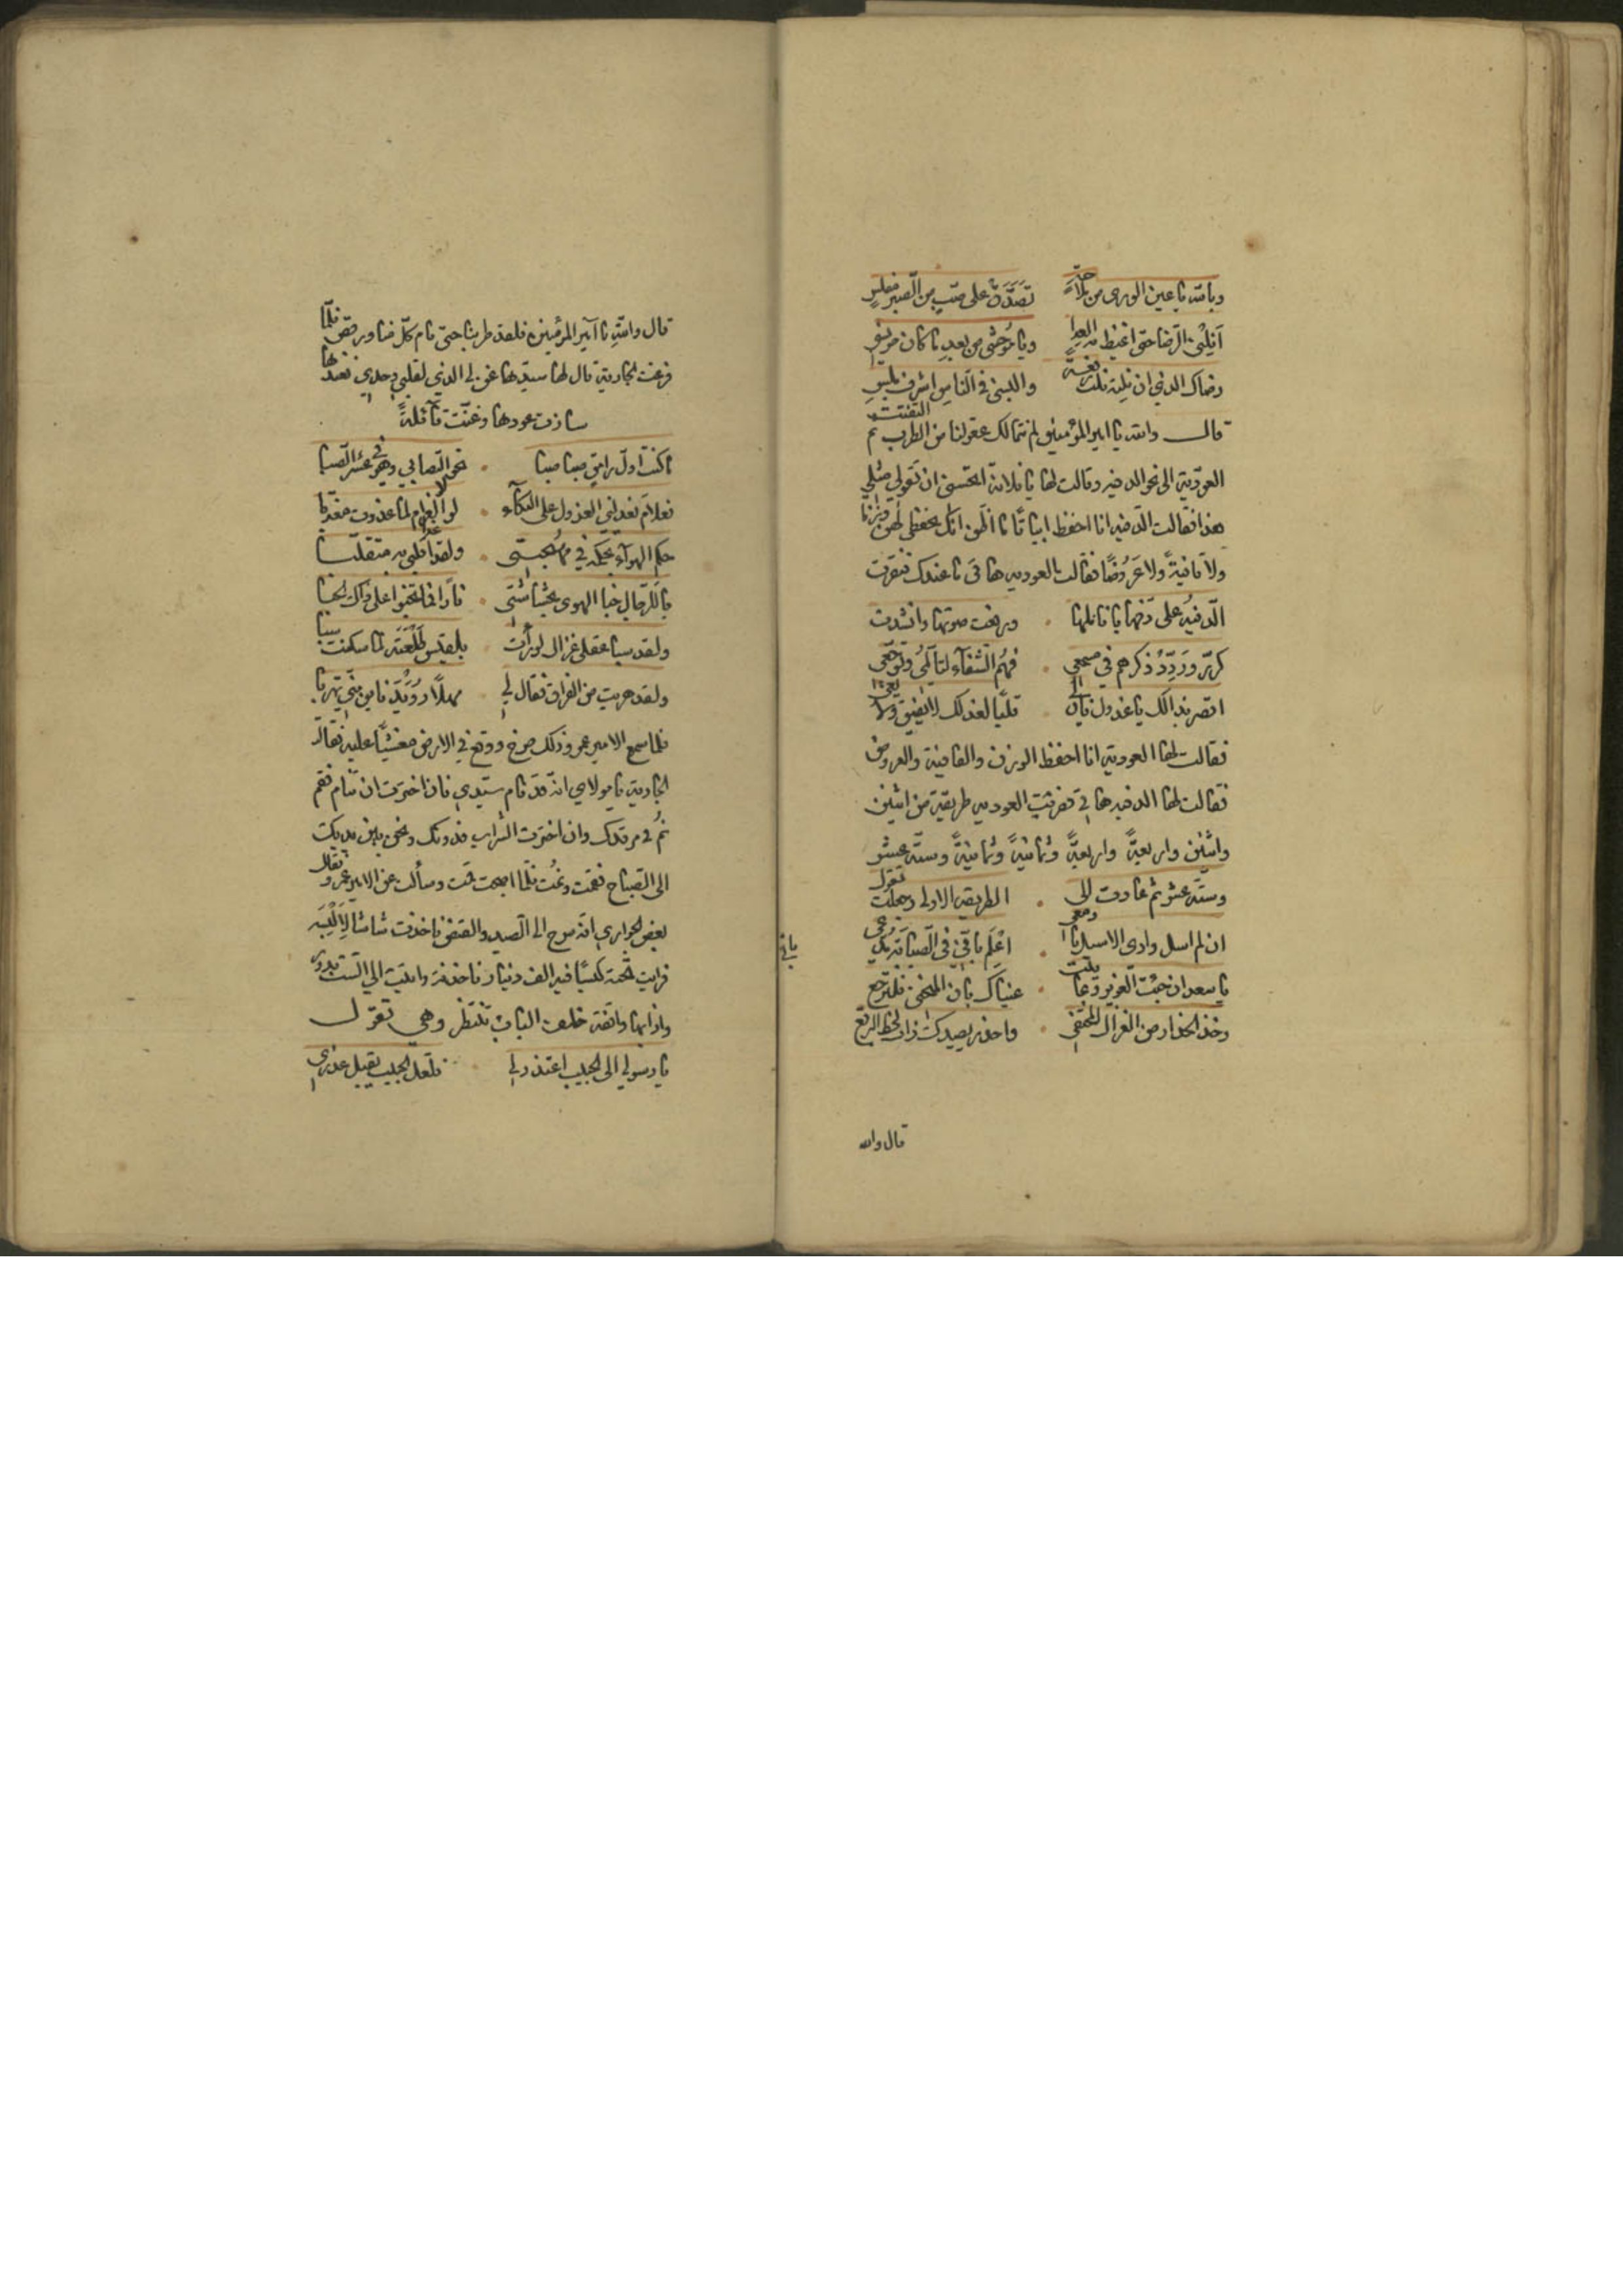 وبالله يا عين الورى من ملاحة تصدق على صب من الصبر مفلس
انيلني الرضا حتى اغيظ به العدا ويا موحشي من بعد ما كان مونسي
رضاك الذي ان نلته نلت نعمة والبسني في الناس اشرف ملبس
قال والله يا امير المؤمنين لم نتمالك عقولنا من الطرب ثم التفتت
العودية الى نحو الدفيه وقالت لها يا فلانة اتحسني ان تقولي مثلي
هذا فقالت الدفيه انا احفظ ابياتا ما اظن انك تحفظي لهن وزنا
ولا قافية ولا عروضا فقالت العوديه هاتي ما عندك فنقرت
الدفيه على دفها باناملها ورفعت صوتها وانشدت
كرر وردد ذكرهم في مسمعي فهم الشفاء لتألمي وتوجعي
اقصر بذالك يا عذول فان لي قلبا لعذلك لا يفيق ولا يعي
فقالت لها العودية انا احفظ الوزن والقافية والعروض
فقالت لها الدفيه هاتي فضربت العوديه طريقة من اثنين
واثنين واربعة واربعة وثمانية وثمانية وستة عشر
وستة عشر ثم عادت الى الطريقه الاولى وجعلت تقول
ان لم اسل وادي الاسيل بادمعي اعلم باني في الصبابة مدعي
يا سعد ان جئت الغوير وعاينت عيناك بان المنحنى فلترجع
وخذ الحذار من الغزال المختفي واحذر يصيدك ذاك لحظ البرقع
قال والله
باني
قال والله يا امير المؤمنين فلقد طربنا حتى قام كل منا ورقص فلما
فرغت الجارية قال لها سيدها غني لي الذي لقلبي وحدي فعندها
سازت عودها وغنت قائلة
ما كنت اول رامق صبا صبا نحو التصابي وهو في عشر الصبا
فعلام تعذلني العذول على البكاء لولا الغرام لما غدوت معذبا
حكم الهواء بحكمه في مهجتي ولقد غدا قلبي به متقلبا
يا للرجال خبا الهوى بحشاشتي نارا فما تخبوا على ذاك الخبا
ولقد سبا عقلي غزال لو رأت بلقيس طلعته لما سكنت سبا
ولقد هربت من الفراق فقال لي مهلا رويدا فاين مني تهربا
فلما سمع الامير عمرو ذلك صرخ ووقع في الارض مغشيا عليه فقالت
الجارية يا مولاي انه قد نام سيدي فان اخترت ان تنام فقم
نم في مرقدك وان اخترت الشراب فدونك ونحن بين يديك
الى الصباح فقمت ونمت فلما اصبحت قمت وسألت عن الامير عمرو فقال
بعض الجواري انه سرح الى الصيد والقنص فاخذت شاشا لالبسه
فرايت تحته كيسا فيه الف دينار فاخذته واتيت الى الست بدور
واذا بها واقفة خلف الباب تنتظر وهي تقول
يا رسولي الى الحبيب اعتذر لي فلعل الحبيب يقبل عذري